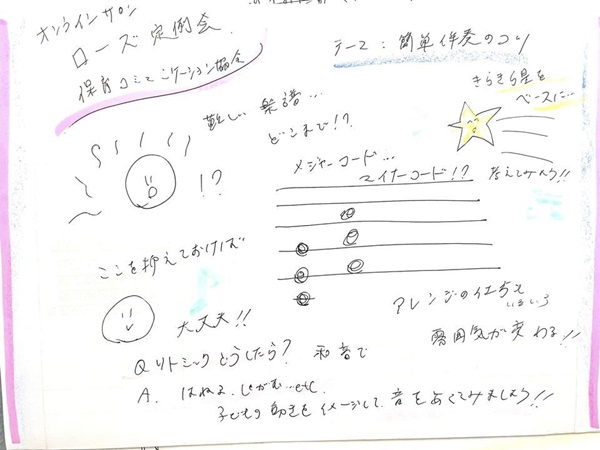 オンラインサロン
ローズ定例会
保育コミュニケーション協会
テーマ：簡単伴奏のコツ
きらきら星を
ベースに…
難しい楽譜…
どこまで!?
!?
メジャーコード…
マイナーコード!?
考えてみよう!!
ここを抑えておけば
大丈夫!!
アレンジの仕方
いろいろ
雰囲気が変わる!!
Q リトミックどうしたら? 和音で
A. はねる、しゃがむ…etc.
子どもの動きをイメージして、音をよくてみましょう!!